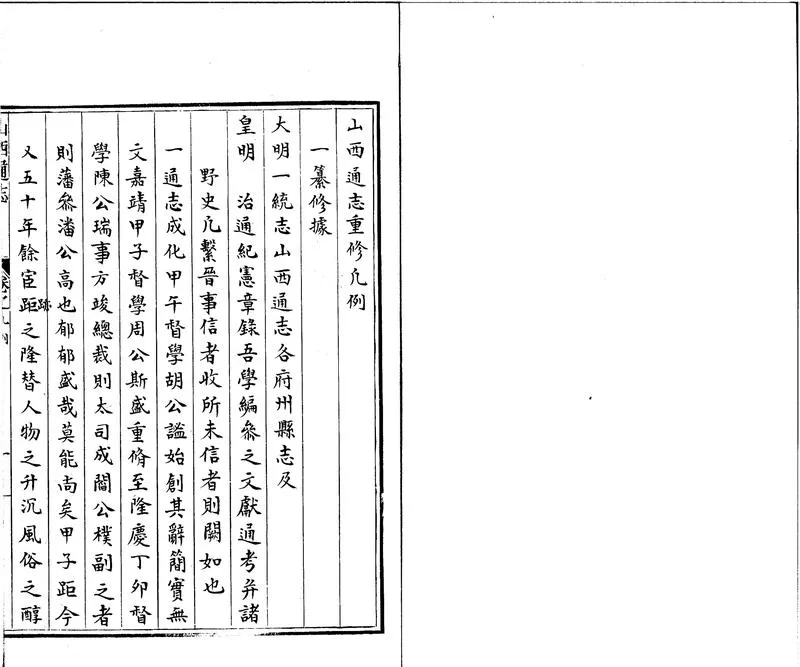 山西通志重修凡例
一纂修據
大明一統志山西通志各府州縣志及
皇明 治通紀憲章錄吾學編叅之文獻通考并諸
野史凡繫晉事信者收所未信者則闕如也
一通志成化甲午督學胡公謐始創其辭簡實無
文嘉靖甲子督學周公斯盛重脩至隆慶丁卯督
學陳公瑞事方竣總裁則太司成閻公樸副之者
則藩叅潘公高也郁郁盛哉莫能尚矣甲子距今
又五十年餘宦距跡之隆替人物之升沉風俗之醇
山西通志